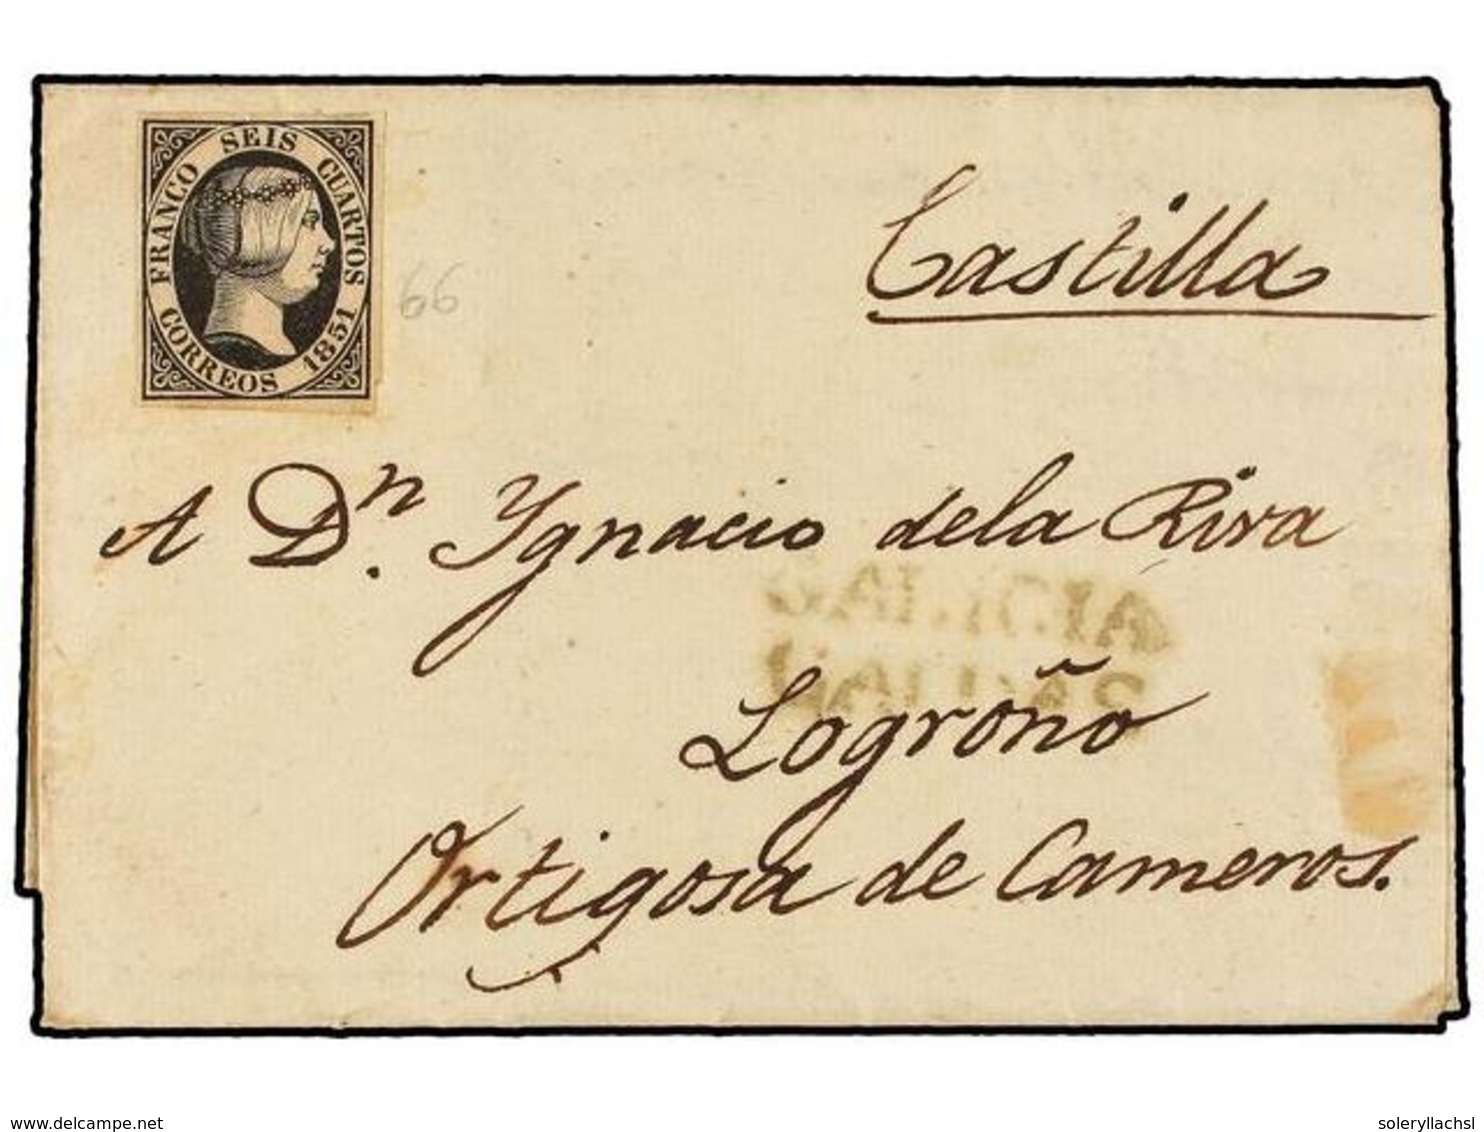 FRANCO SEIS CUARTOS
CORREOS 1851
66
Castilla
A Dn. Ygnacio dela Riva
Logroño
Ortigosa de Cameros.
www.delcampe.net
soleryllachsl